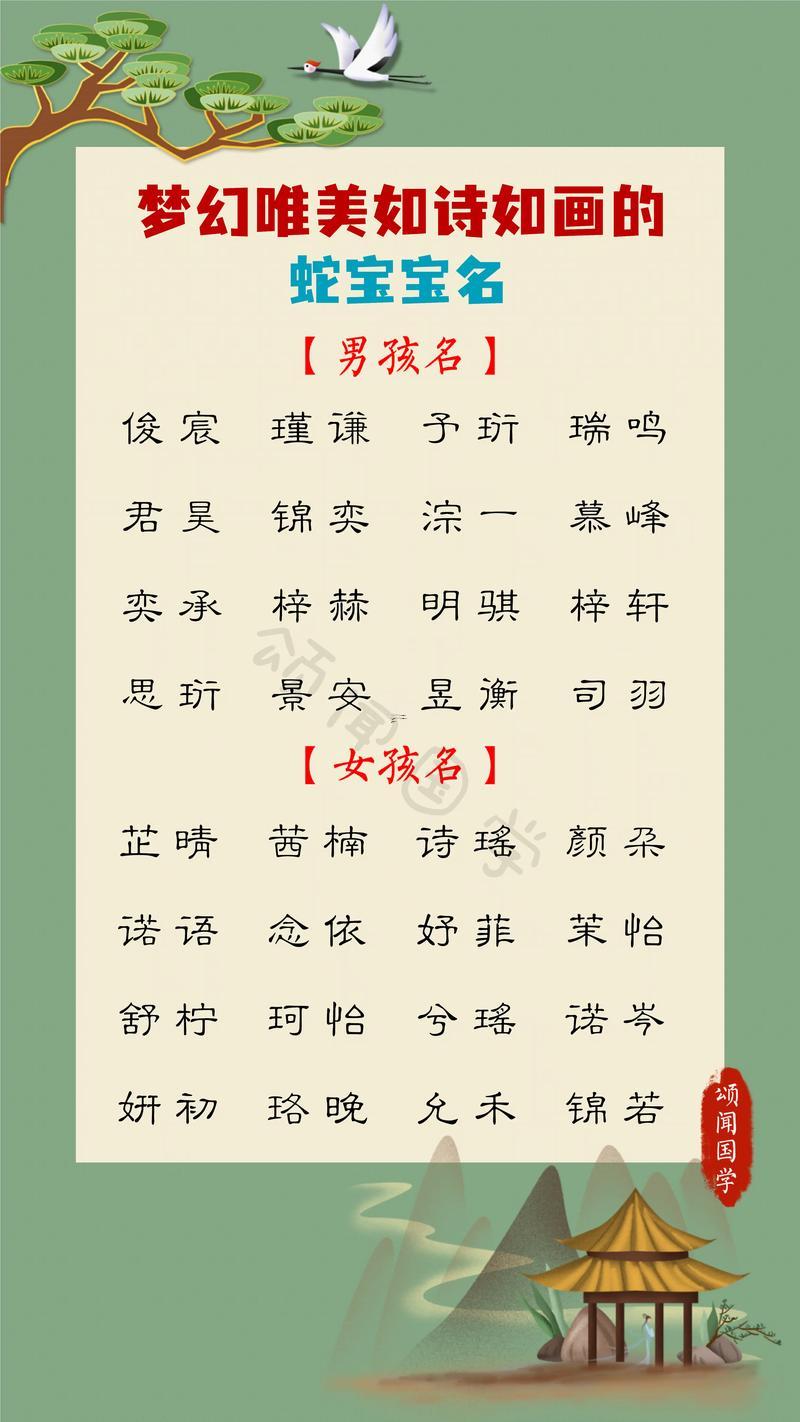 梦幻唯美如诗如画的
蛇宝宝名
【男孩名】
俊宸 瑾谦 予珩 瑞鸣
君昊 锦奕 淙一 慕峰
奕承 梓赫 明骐 梓轩
思珩 景安 昱衡 司羽
【女孩名】
芷晴 茜楠 诗瑶 颜朵
诺语 念依 妤菲 茉怡
舒柠 珂怡 兮瑶 诺岑
妍初 珞晚 允禾 锦若
颂闻国学
颂闻国学